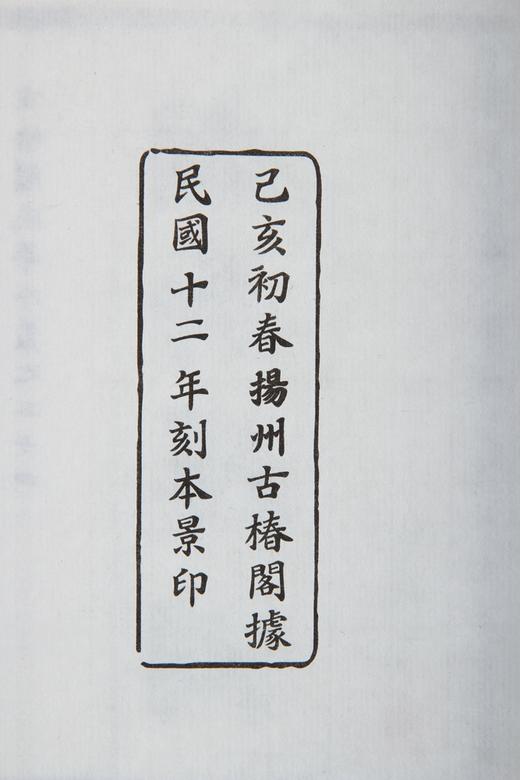 己亥初春揚州古椿閣據
民國十二年刻本景印